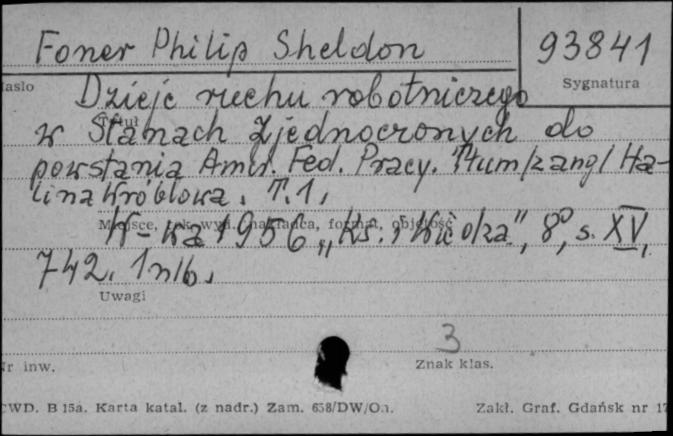 Foner Philip Sheldon
93841
Hasło
Sygnatura
Dzieje ruchu robotniczego
Tytuł
w Stanach Zjednoczonych do
powstania Amer. Fed. Pracy. Tłum/z ang/ Ha-
lina Króblowa. T.1,
Miejsce, rok wyd. nakładca, format, objętość
W-wa 1956 „Ks. i Wiedza", 8°, s. XV,
742. 1 nlb.
Uwagi
3
Nr inw.
Znak klas.
CWD. B 15a. Karta katal. (z nadr.) Zam. 638/DW/On.
Zakł. Graf. Gdańsk nr 17